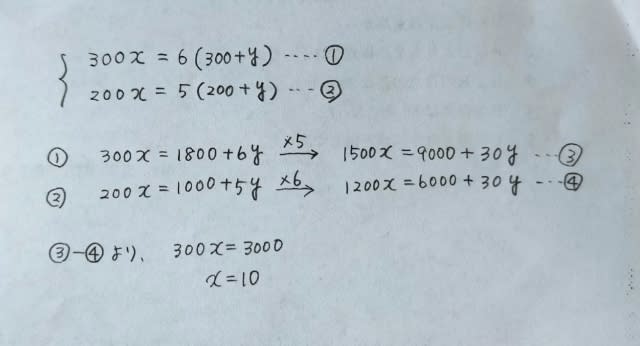 300x = 6(300+y) ---- ①
200x = 5(200+y) --- ②
① 300x = 1800+6y ×5→ 1500x = 9000+30y --- ③
② 200x = 1000+5y ×6→ 1200x = 6000+30y --- ④
③-④ より、 300x = 3000
x = 10